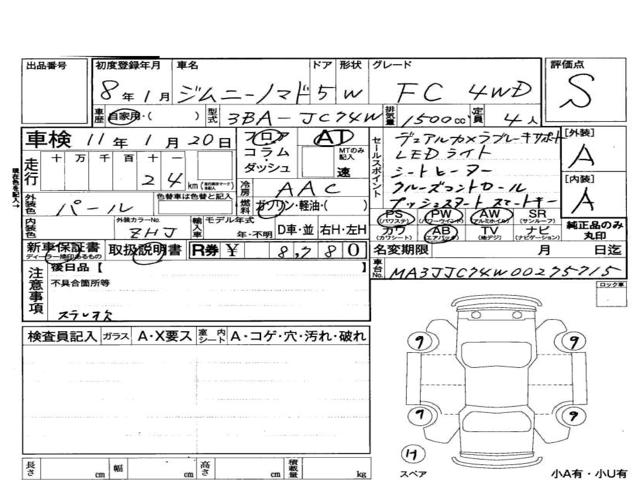 出品番号 初度登録年月 車名 ドア 形状 グレード 評価点
8年1月 ジムニーノマド 5 W FC 4WD S
車歴 自家用・( ) 型式 3BA-JC74W 排気量 1500cc 定員 4人
車検 11年1月20日 フロア・コラム・ダッシュ AT MTのみ記入 速
セールスポイント
デュアルカメラブレーキサポート
LEDライト
シートヒーター
クルーズコントロール
プッシュスタート スマートキー
[外装] A
[内装] A
走行 十万千百十一
24km
冷房 AAC
外装色 パール 色替車は色替と記入
燃料 ガソリン・軽油・( )
内装色 外装カラーNo. ZHJ
輸入車 モデル年式 年・不明 D車・並 右H・左H
PS (パワステ) PW (パワーウインド) AW (アルミホイル) SR (サンルーフ)
カワ (カワシート) AB (エアバック) TV (地デジ) ナビ (ナビゲーション)
純正品のみ丸印
新車保証書 ディーラー捺印あるもの 取扱説明書 R券 ¥ 8,780
名変期限 月 日迄
車台No. MA3JJC74W00275715
注意事項 後日品【
不具合箇所等
ステレオ欠
ロック車
検査員記入 ガラス A・X要ス 室内シート A・コゲ・穴・汚れ・破れ
9 9
9 9
長さ cm 幅 cm 高さ cm 積載量 kg
H
スペア 小A有・小U有